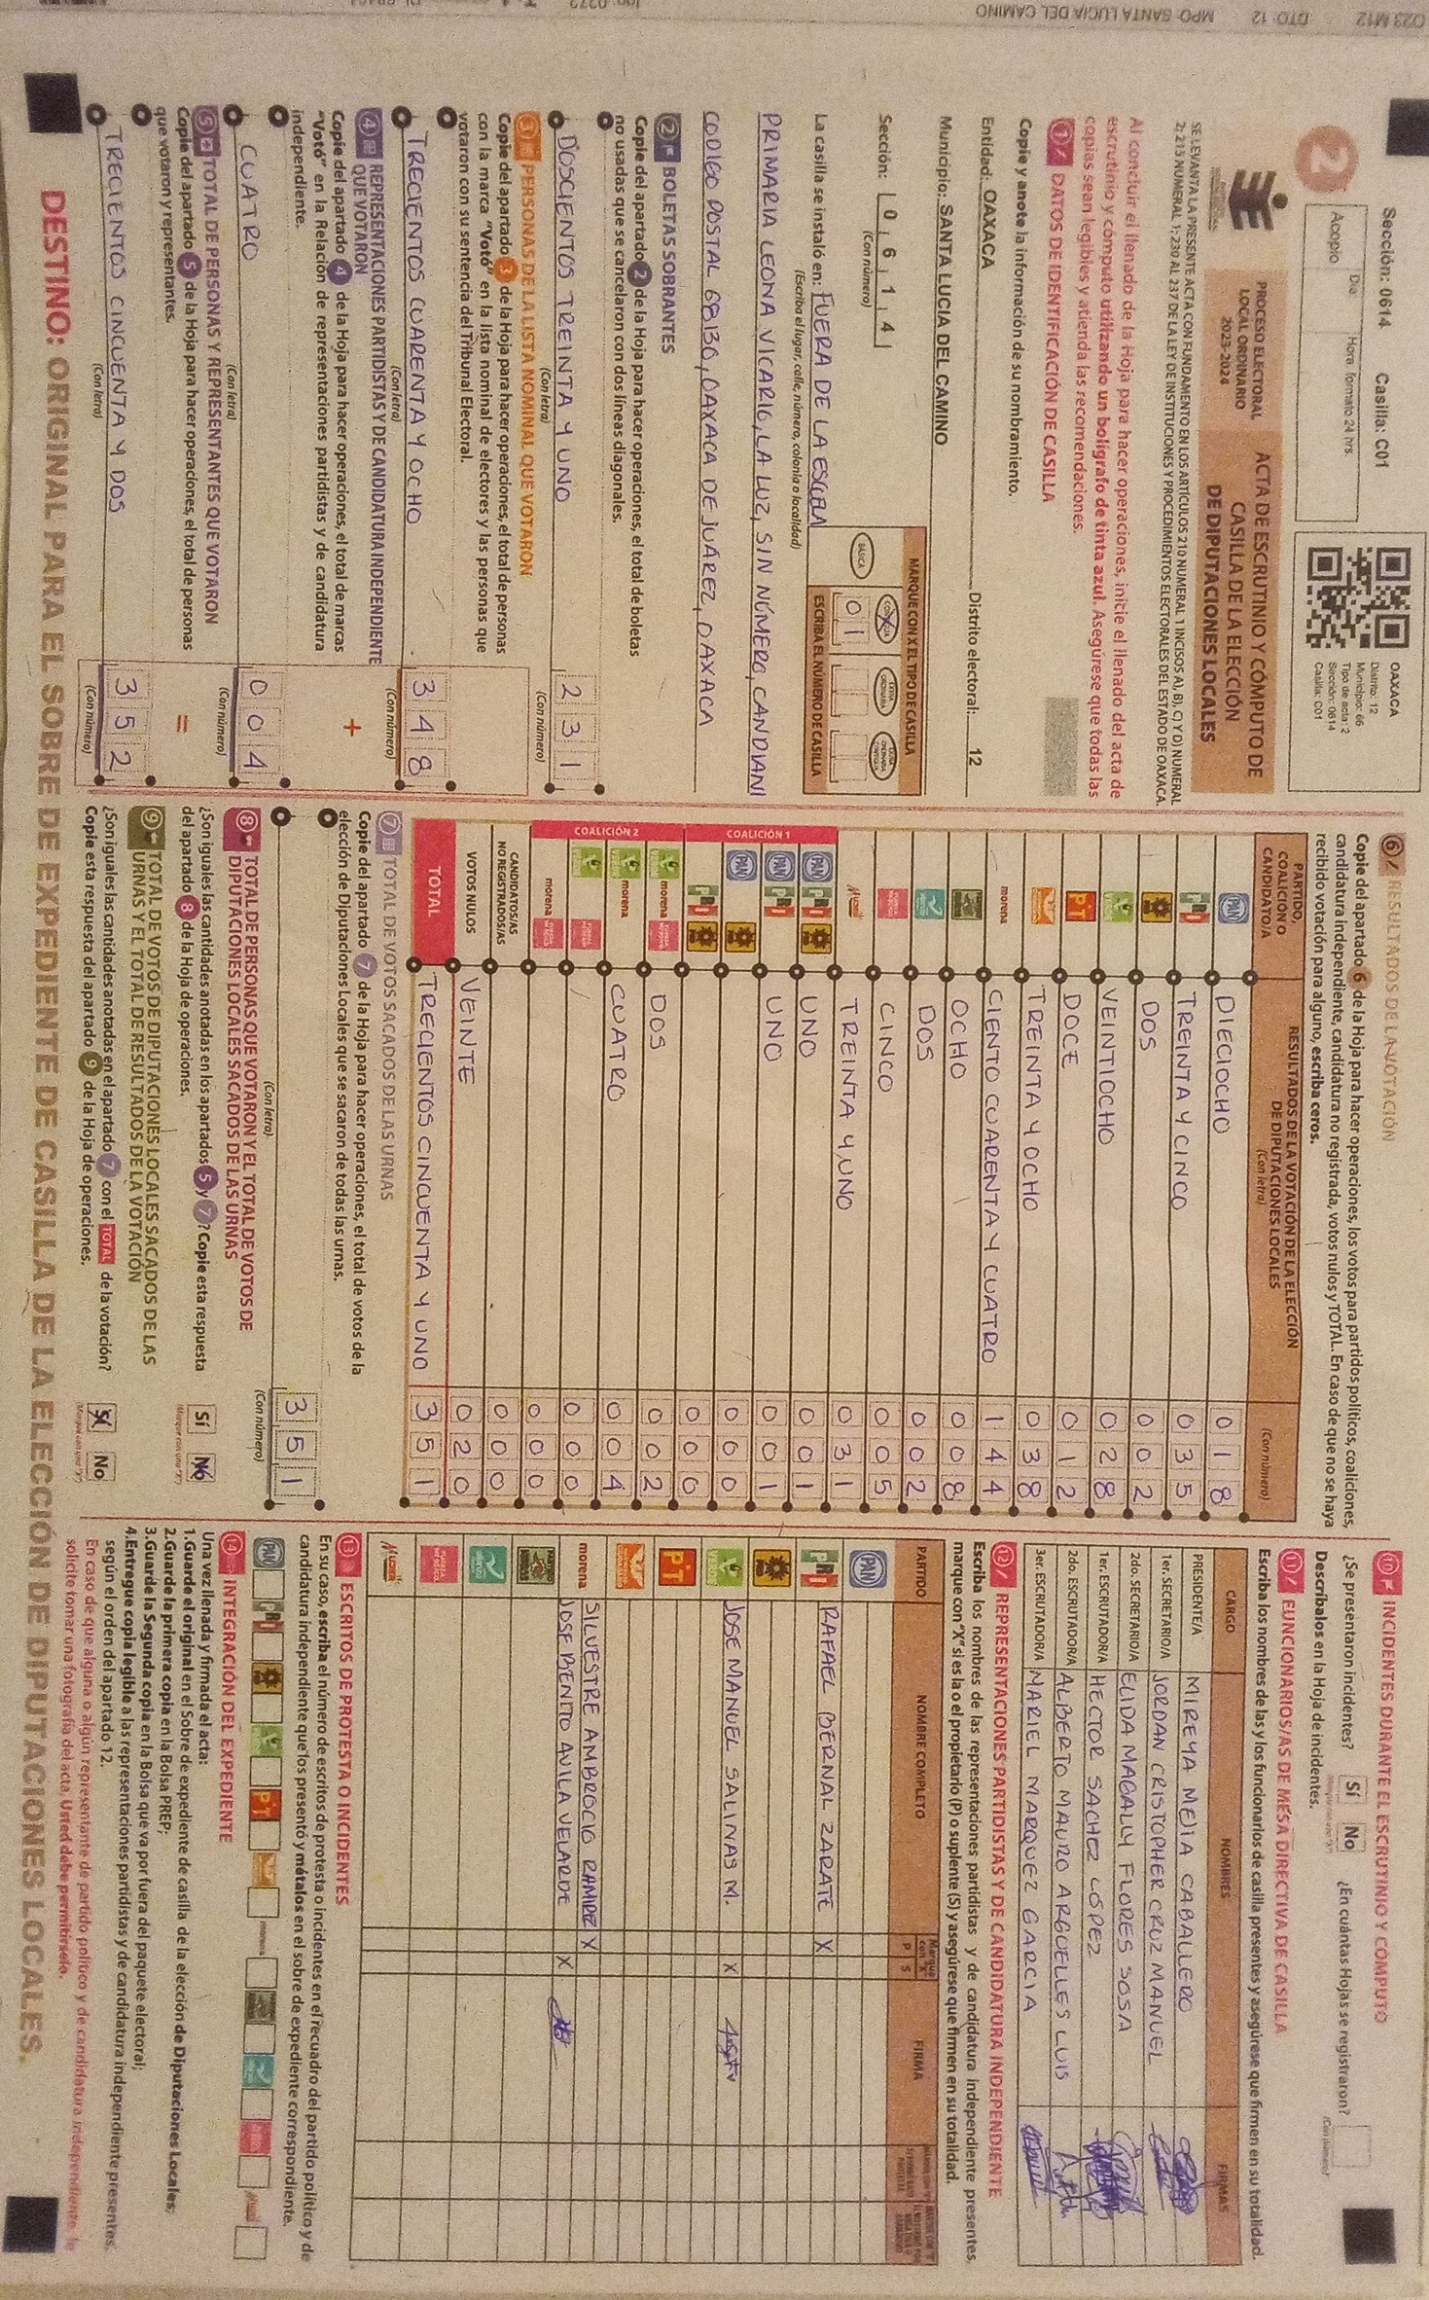 O23 M12 DTO: 12 MPO: SANTA LUCIA DEL CAMINO
Sección: 0614 Casilla: C01
2
Día Hora formato 24 hrs.
Acopio
OAXACA
Distrito: 12
Municipio: 66
Tipo de acta: 2
Sección: 0614
Casilla: C01
PROCESO ELECTORAL
LOCAL ORDINARIO
2023-2024
ACTA DE ESCRUTINIO Y CÓMPUTO DE
CASILLA DE LA ELECCIÓN
DE DIPUTACIONES LOCALES
SE LEVANTA LA PRESENTE ACTA CON FUNDAMENTO EN LOS ARTÍCULOS 210 NUMERAL 1 INCISOS A), B), C) Y D) NUMERAL
2; 215 NUMERAL 1; 230 AL 237 DE LA LEY DE INSTITUCIONES Y PROCEDIMIENTOS ELECTORALES DEL ESTADO DE OAXACA.
Al concluir el llenado de la Hoja para hacer operaciones, inicie el llenado del acta de
escrutinio y cómputo utilizando un bolígrafo de tinta azul. Asegúrese que todas las
copias sean legibles y atienda las recomendaciones.
1 DATOS DE IDENTIFICACIÓN DE CASILLA
Copie y anote la información de su nombramiento.
Entidad: OAXACA Distrito electoral: 12
Municipio: SANTA LUCIA DEL CAMINO
Sección: 0 6 1 4
(Con número)
MARQUE CON X EL TIPO DE CASILLA
BÁSICA
ESCRIBA EL NÚMERO DE CASILLA
0 1
La casilla se instaló en: FUERA DE LA ESCUELA
(Escriba el lugar, calle, número, colonia o localidad)
PRIMARIA LEONA VICARIO, LA LUZ, SIN NÚMERO, CANDIANI
CODIGO POSTAL 68130, OAXACA DE JUÁREZ, OAXACA
2 BOLETAS SOBRANTES
Copie del apartado 2 de la Hoja para hacer operaciones, el total de boletas
no usadas que se cancelaron con dos líneas diagonales.
DOSCIENTOS TREINTA Y UNO 2 3 1
(Con letra) (Con número)
3 PERSONAS DE LA LISTA NOMINAL QUE VOTARON
Copie del apartado 3 de la Hoja para hacer operaciones, el total de personas
con la marca "Votó" en la lista nominal de electores y las personas que
votaron con su sentencia del Tribunal Electoral.
TRECIENTOS CUARENTA Y OCHO 3 4 8
(Con letra) (Con número)
4 REPRESENTACIONES PARTIDISTAS Y DE CANDIDATURA INDEPENDIENTE
QUE VOTARON
+
Copie del apartado 4 de la Hoja para hacer operaciones, el total de marcas
"Votó" en la Relación de representaciones partidistas y de candidatura
independiente.
CUATRO 0 0 4
(Con letra) (Con número)
5 TOTAL DE PERSONAS Y REPRESENTANTES QUE VOTARON
=
Copie del apartado 5 de la Hoja para hacer operaciones, el total de personas
que votaron y representantes.
TRECIENTOS CINCUENTA Y DOS 3 5 2
(Con letra) (Con número)
6 RESULTADOS DE LA VOTACIÓN
Copie del apartado 6 de la Hoja para hacer operaciones, los votos para partidos políticos, coaliciones,
candidatura independiente, candidatura no registrada, votos nulos y TOTAL. En caso de que no se haya
recibido votación para alguno, escriba ceros.
PARTIDO,
COALICIÓN O
CANDIDATO/A
RESULTADOS DE LA VOTACIÓN DE LA ELECCIÓN
DE DIPUTACIONES LOCALES
(Con letra) (Con número)
PAN DIECIOCHO 0 1 8
PRI TREINTA Y CINCO 0 3 5
DOS 0 0 2
VERDE VEINTIOCHO 0 2 8
PT DOCE 0 1 2
TREINTA Y OCHO 0 3 8
morena CIENTO CUARENTA Y CUATRO 1 4 4
OCHO 0 0 8
DOS 0 0 2
CINCO 0 0 5
TREINTA Y UNO 0 3 1
COALICIÓN 1
PAN PRI UNO 0 0 1
PAN PRI UNO 0 0 1
PAN 0 0 0
PRI 0 0 0
COALICIÓN 2
morena DOS 0 0 2
morena CUATRO 0 0 4
0 0 0
morena 0 0 0
CANDIDATOS/AS
NO REGISTRADOS/AS 0 0 0
VOTOS NULOS VEINTE 0 2 0
TOTAL TRECIENTOS CINCUENTA Y UNO 3 5 1
7 TOTAL DE VOTOS SACADOS DE LAS URNAS
Copie del apartado 7 de la Hoja para hacer operaciones, el total de votos de la
elección de Diputaciones Locales que se sacaron de todas las urnas.
3 5 1
(Con letra) (Con número)
8 TOTAL DE PERSONAS QUE VOTARON Y EL TOTAL DE VOTOS DE
DIPUTACIONES LOCALES SACADOS DE LAS URNAS
¿Son iguales las cantidades anotadas en los apartados 5 y 7? Copie esta respuesta
del apartado 8 de la Hoja de operaciones.
Sí No
9 TOTAL DE VOTOS DE DIPUTACIONES LOCALES SACADOS DE LAS
URNAS Y EL TOTAL DE RESULTADOS DE LA VOTACIÓN
¿Son iguales las cantidades anotadas en el apartado 7 con el TOTAL de la votación?
Copie esta respuesta del apartado 9 de la Hoja de operaciones.
Sí No
10 INCIDENTES DURANTE EL ESCRUTINIO Y CÓMPUTO
¿Se presentaron incidentes? Sí No ¿En cuántas Hojas se registraron?
(Con número)
Descríbalos en la Hoja de incidentes.
11 FUNCIONARIOS/AS DE MESA DIRECTIVA DE CASILLA
Escriba los nombres de las y los funcionarios de casilla presentes y asegúrese que firmen en su totalidad.
CARGO NOMBRES FIRMAS
PRESIDENTE/A MIREYA MEJIA CABALLERO
1er. SECRETARIO/A JORDAN CRISTOPHER CRUZ MANUEL
2do. SECRETARIO/A ELIDA MAGALLY FLORES SOSA
1er. ESCRUTADOR/A HECTOR SACHEZ LOPEZ
2do. ESCRUTADOR/A ALBERTO MAURO ARGUELLES LUIS
3er. ESCRUTADOR/A MARIEL MARQUEZ GARCIA
12 REPRESENTACIONES PARTIDISTAS Y DE CANDIDATURA INDEPENDIENTE
Escriba los nombres de las representaciones partidistas y de candidatura independiente presentes,
marque con "X" si es la o el propietario (P) o suplente (S) y asegúrese que firmen en su totalidad.
PARTIDO NOMBRE COMPLETO P S FIRMA
PAN
PRI RAFAEL BERNAL ZARATE X
VERDE JOSE MANUEL SALINAS M. X
PT
morena SILVESTRE AMBROCIO RAMIREZ X
JOSE BENITO AVILA VELARDE X
13 ESCRITOS DE PROTESTA O INCIDENTES
En su caso, escriba el número de escritos de protesta o incidentes en el recuadro del partido político y de
candidatura independiente que los presentó y métalos en el sobre de expediente correspondiente.
PAN PRI VERDE PT morena
14 INTEGRACIÓN DEL EXPEDIENTE
Una vez llenada y firmada el acta:
1.Guarde el original en el Sobre de expediente de casilla de la elección de Diputaciones Locales;
2.Guarde la primera copia en la Bolsa PREP;
3.Guarde la Segunda copia en la Bolsa que va por fuera del paquete electoral;
4.Entregue copia legible a las representaciones partidistas y de candidatura independiente presentes,
según el orden del apartado 12.
En caso de que alguna o algún representante de partido político y de candidatura independiente le
solicite tomar una fotografía del acta, Usted debe permitírselo.
DESTINO: ORIGINAL PARA EL SOBRE DE EXPEDIENTE DE CASILLA DE LA ELECCIÓN DE DIPUTACIONES LOCALES.